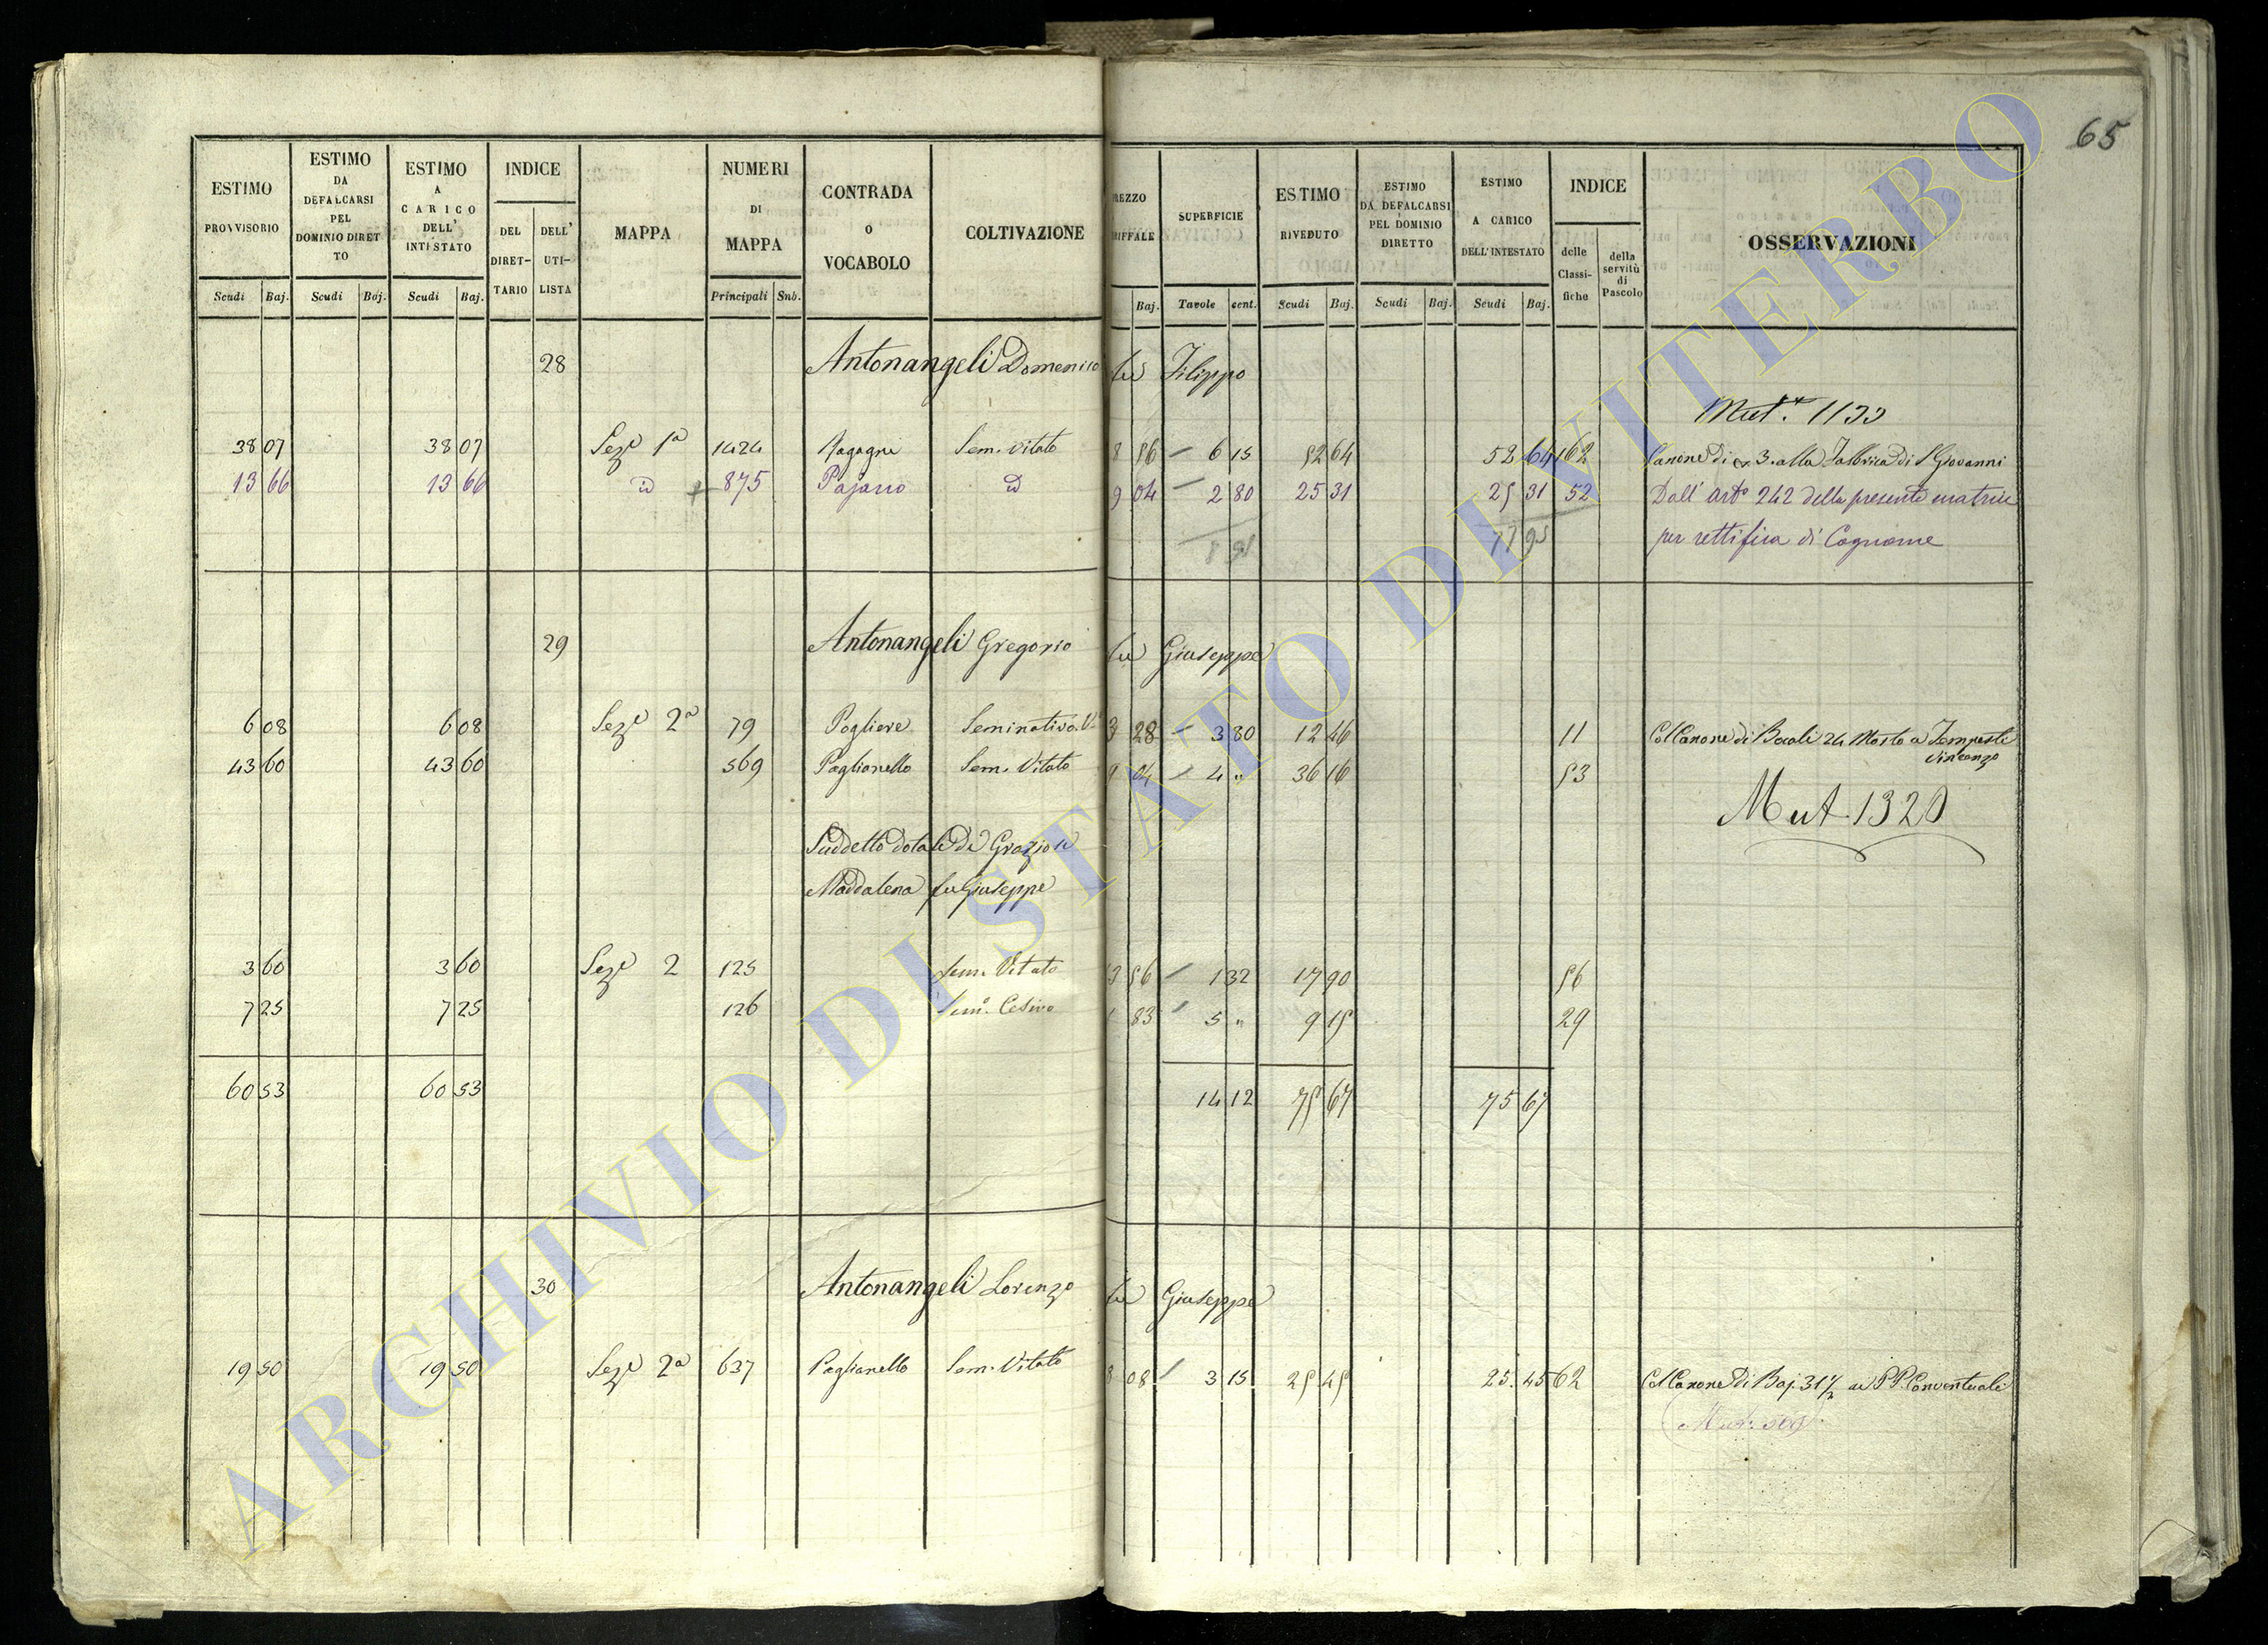 65
ESTIMO PROVVISORIO
ESTIMO DA DEFALCARSI PEL DOMINIO DIRETTO
ESTIMO A CARICO DELL' INTESTATO
INDICE
DEL DIRETTARIO
DELL' UTILISTA
MAPPA
NUMERI DI MAPPA
CONTRADA O VOCABOLO
COLTIVAZIONE
REZZO RIFFALE
SUPERFICIE
ESTIMO RIVEDUTO
ESTIMO DA DEFALCARSI PEL DOMINIO DIRETTO
ESTIMO A CARICO DELL'INTESTATO
INDICE
delle Classifiche
della servitù di Pascolo
OSSERVAZIONI
Scudi Baj. Scudi Baj. Scudi Baj. Principali Sub. Baj. Tavole cent. Scudi Baj. Scudi Baj. Scudi Baj.
28 Antonangeli Domenico fu Filippo
Mut.e 1133
38 07 38 07 Seze 1a 1424 Sem. Vitato 8 56 6 15 52 64 52 64 162 Canone di 3. alla Fabbrica di S Giovanni
13 66 13 66 id 875 Pajarro id 9 04 2 80 25 31 25 31 52 Dall' arto 242 della presente matrice
8 95 77 95 per rettifica di Cognome
29 Antonangeli Gregorio fu Giuseppe
6 08 6 08 Seze 2a 79 Pogliere Seminativo Vo 3 28 3 80 12 46 11 Col Canone di Bocali 24 Mosto a Tempesti Vincenzo
43 60 43 60 569 Paglianello Sem. Vitato 9 04 4 " 36 16 53
Mut. 1320
Suddetto dotale di Graziosi
Maddalena fu Giuseppe
3 60 3 60 Seze 2 125 Sem. Vitato 13 56 1 32 17 90 56
7 25 7 25 126 Semo. Cesivo 1 83 5 " 9 15 29
60 53 60 53 14 12 75 67 75 67
30 Antonangeli Lorenzo fu Giuseppe
19 50 19 50 Seze 2a 637 Paglianello Sem. Vitato 8 08 3 15 25 45 25 45 62 Col Canone di Baj. 31 1/2 ai P P. Conventuali
ARCHIVIO DI STATO DI VITERBO